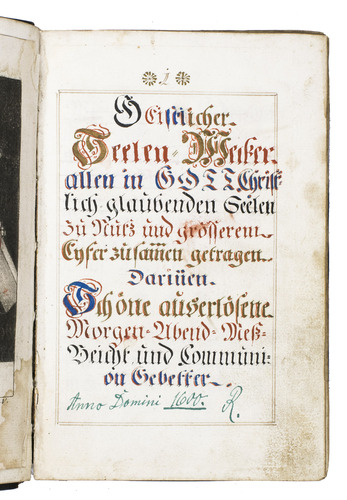 1
GEistlicher
Seelen-Wecker
allen in GOTT Christ-
lich glaubenden Seelen
Zu Nutz und grösserem
Eyfer zusam̄en getragen
Dariñen
Schöne auserlösene
Morgen-Abend-Meß-
Beicht und Communi-
on Gebetter
Anno Domini 1600. R.